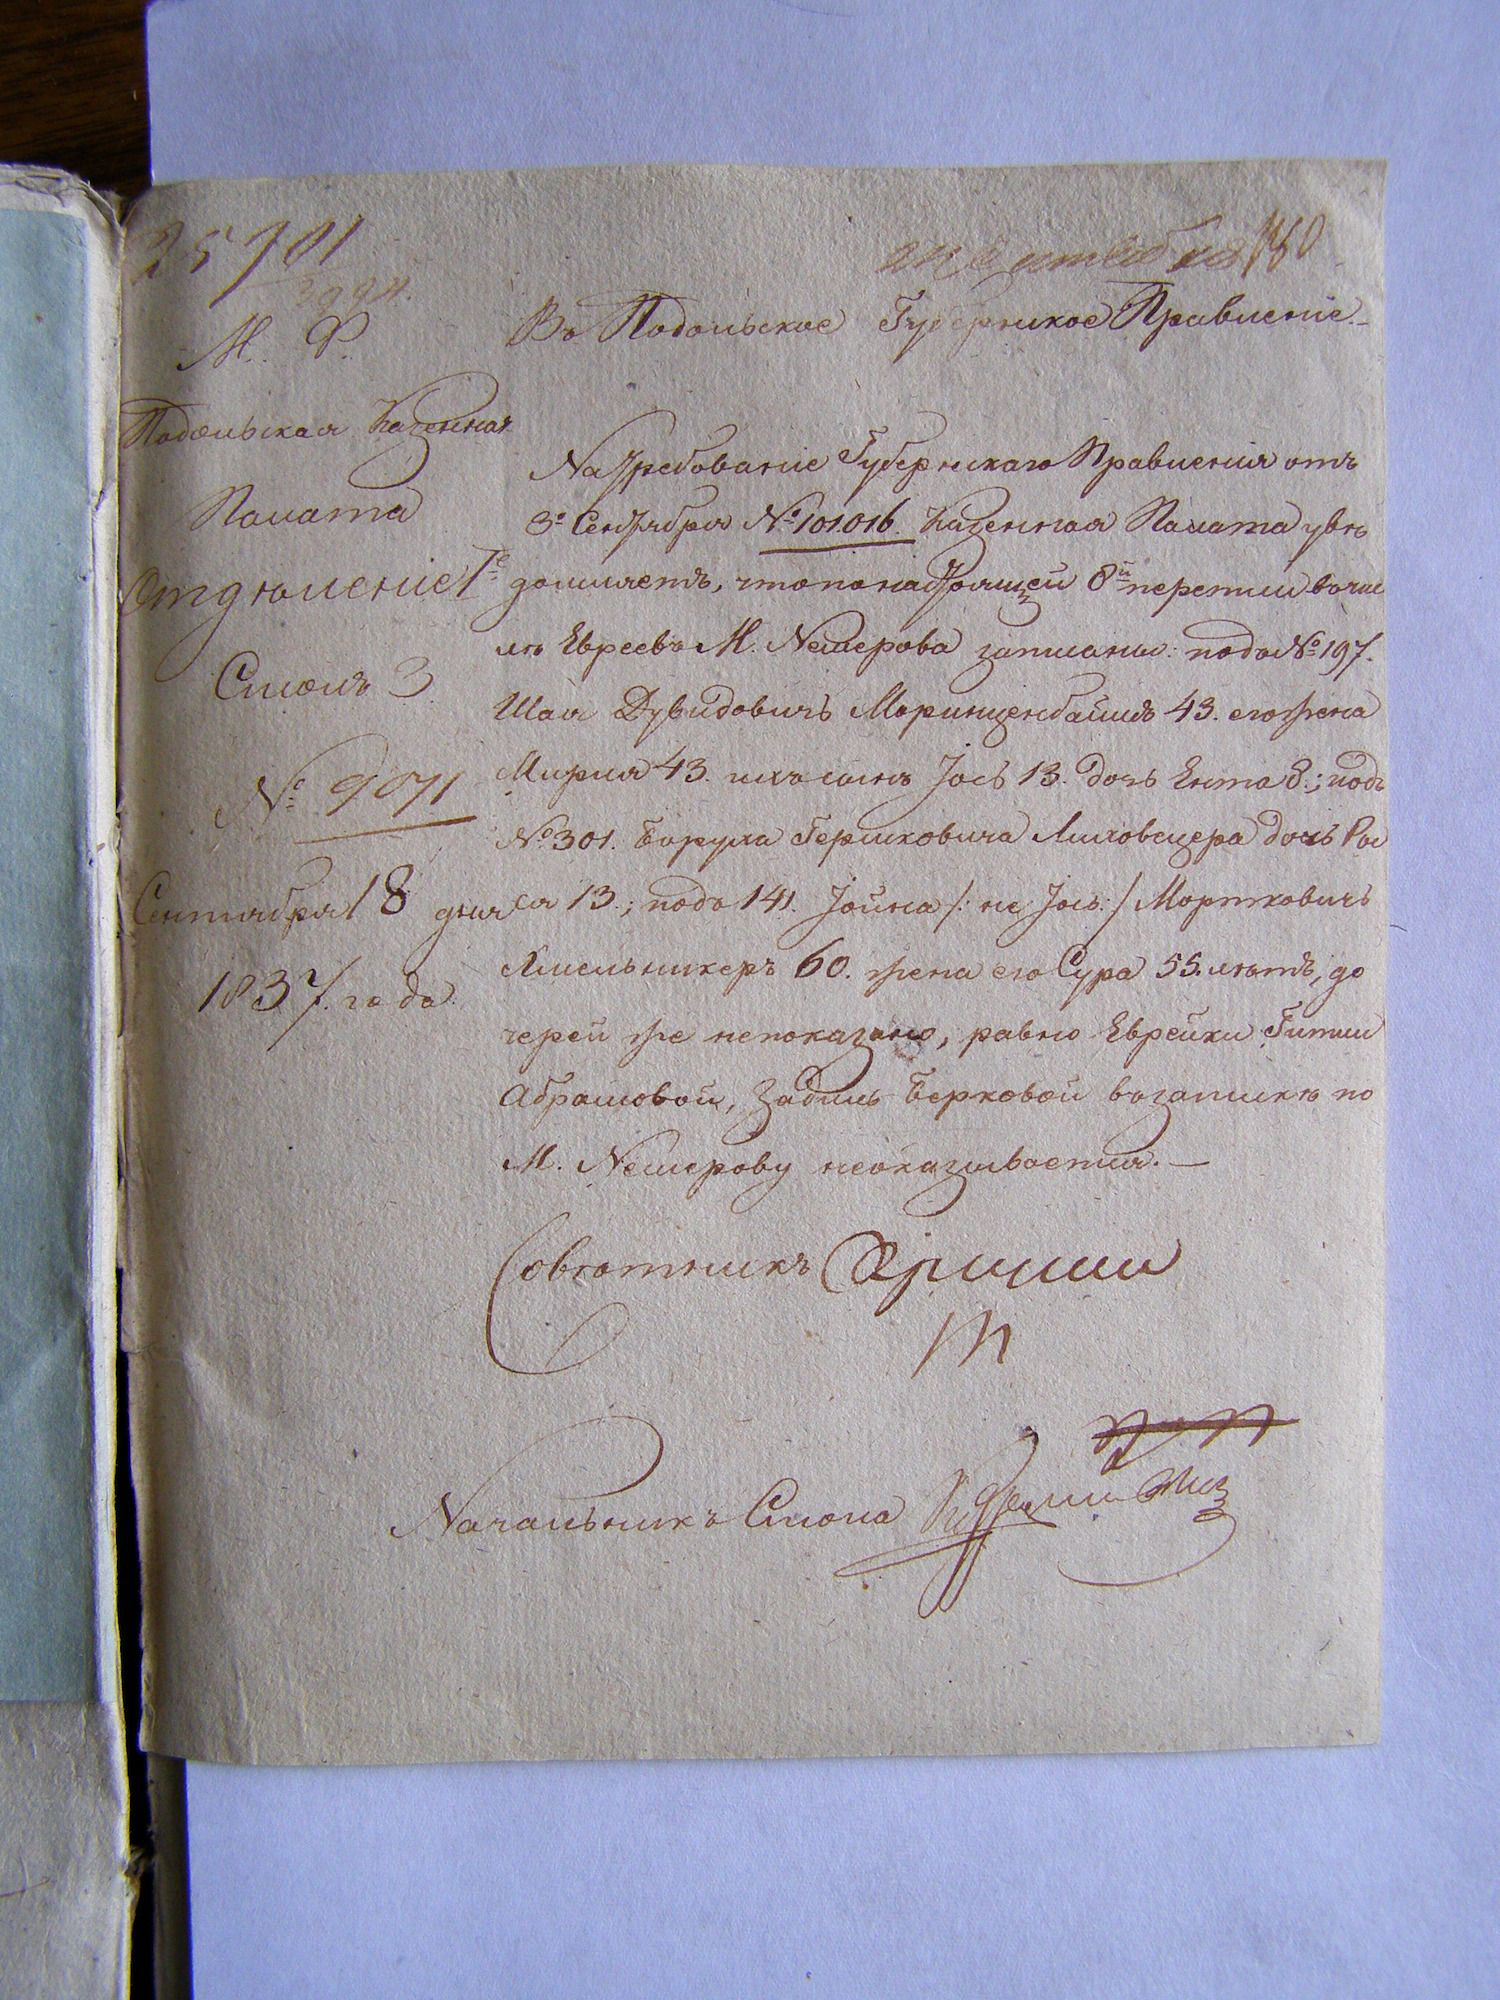 25701
3994.
180
М. Ф.
Въ Подольское Губернское Правленіе.
Подольская Казенная
Палата
Отдѣленіе 1е
Столъ 3
№ 9071
Сентября 18 дня
1837 года.
На требованіе Губернскаго Правленія отъ
3го Сентября № 101.016. Казенная Палата увѣ
домляетъ, что по настоящей 8й переписи въ чис
лѣ Евреевъ М. Немерова записаны: подъ № 197.
Шая Дувидовичъ 43. его жена
Мирля 43. ихъ сынъ Іось 13. дочь Ента 8.; подъ
№ 301. Боруха Гершковича Ляховецера дочь Рай
ся 13.; подъ 141. Іойна /: не Іось :/ Мортковичъ
Хмельникеръ 60. жена его Сура 55. лѣтъ, до
черей же не показано, равно Еврейки Гитли
Абрамовой, Берковой въ запискѣ по
М. Немерову неоказывается. —
Совѣтникъ
Начальникъ Стола